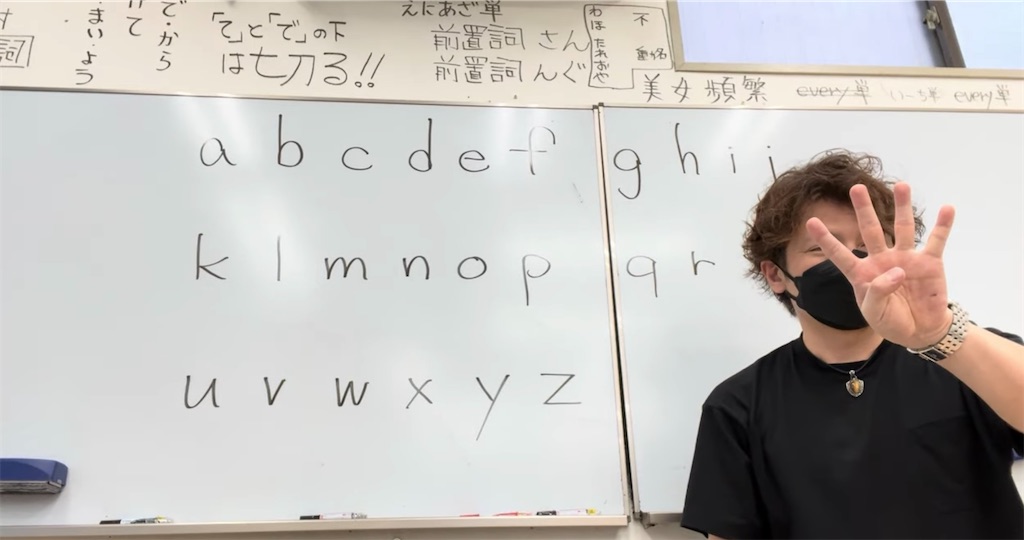 で・から
まい・よう
詞
「て」と「で」の下
は七刀る!!
えにあざ単
前置詞 さん
前置詞 んぐ
不
美女頻繁 every単 いーち単 every単
a b c d e f g h i j
k l m n o p q r
u v w x y z